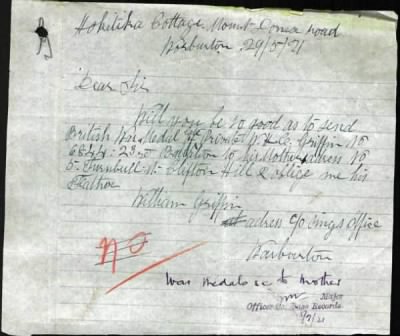 Hokitika Cottage Mount Donna road
Warburton. 29/5/21
Dear Sir
Will you be so good as to send
British War Medal of Private W. H. C. Griffin No
6844. 23rd Battalion to his Mother adress No
5. Turnbull st Clifton Hill & oblige me his
Feather
William Griffin
adress C/o Post Office
Warburton
War Medals to Mother
Major
Officer i/c Base Records